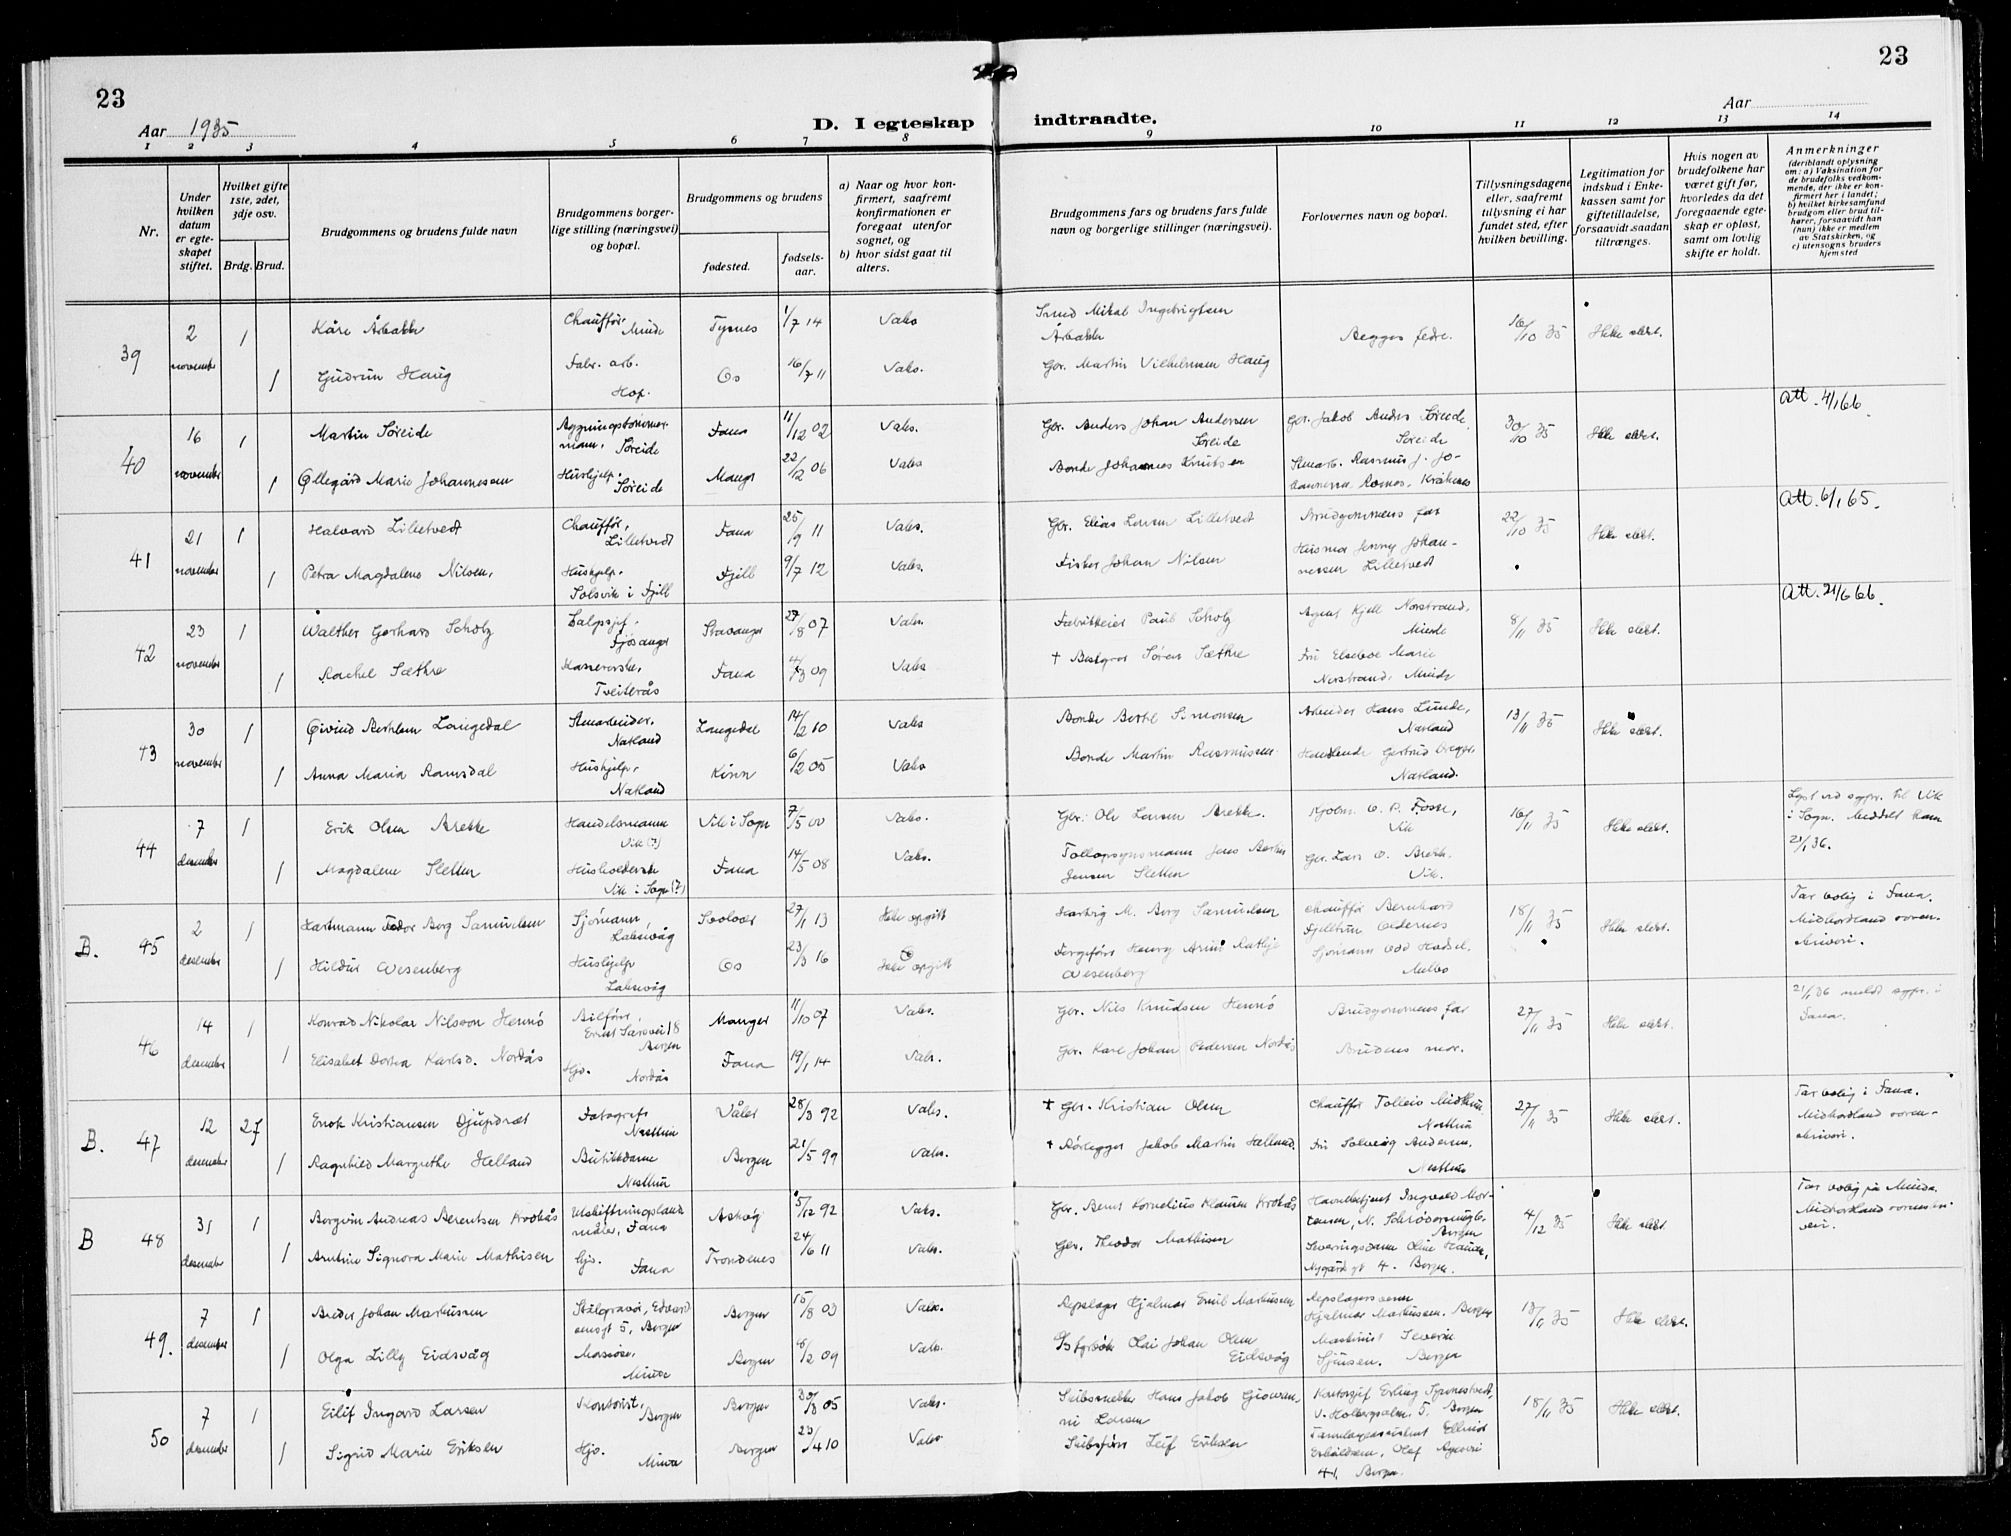 23
23
Aar 1935
D. I egteskap indtraadte.
Aar
1 2 3 4 5 6 7 8 9 10 11 12 13 14
Nr.
Under hvilken datum er egteskapet stiftet.
Hvilket gifte 1ste, 2det, 3dje osv.
Brdg. Brud.
Brudgommens og brudens fulde navn
Brudgommens borgerlige stilling (næringsvei) og bopæl.
Brudgommens og brudens
fødested.
fødselsaar.
a) Naar og hvor konfirmert, saafremt konfirmationen er foregaat utenfor sognet, og
b) hvor sidst gaat til alters.
Brudgommens fars og brudens fars fulde navn og borgerlige stillinger (næringsvei).
Forlovernes navn og bopæl.
Tillysningsdagene eller, saafremt tillysning ei har fundet sted, efter hvilken bevilling.
Legitimation for indskud i Enkekassen samt for giftetilladelse, forsaavidt saadan tiltrænges.
Hvis nogen av brudefolkene har været gift før, hvorledes da det foregaaende egteskap er opløst, samt om lovlig skifte er holdt.
Anmerkninger
(deriblandt oplysning om: a) Vaksination for de brudefolks vedkommende, der ikke er konfirmert her i landet; b) hvilket kirkesamfund brudgom eller brud tilhører, forsaavidt han (hun) ikke er medlem av Statskirken, og c) utensogns bruders hjemsted
39 2 november 1 Kåre Årbakke Chauffør, Minde Tysnes 1/7 14 Vaks Smed Mikal Ingebrigtsen Årbakke Begges fedre. 16/10 35 Ikke slekt.
1 Gudrun Haug Fabr. arb. Hop. Os 16/7 11 Vaks. Gbr. Martin Vilhelmsen Haug
40 16 november 1 Martin Søreide Bygningstømmermann, Søreide Fana 11/12 02 Vaks. Gbr. Anders Johan Andersen Søreide Gbr. Jakob Anders Søreide, Søreide 30/10 35 Ikke slekt. Att. 4/1 66.
1 Øllegård Marie Johannessen Hushjelp, Søreide Manger 22/12 06 Vaks Bonde Johannes Knutsen Rasmus J. Johannessen Kråkenes
41 21 november 1 Halvard Lilletvedt Chauffør, Lilletvedt Fana 25/9 11 Vaks. Gbr. Elias Larsen Lilletvedt Brudgommens far 22/10 35 Ikke slekt. Att. 6/1 65.
1 Petra Magdalene Nilsen, Hushjelp, Solsvik i Fjell Fjell 9/7 12 Vaks. Fisker Johan Nilsen Husmor Jenny Johannessen Lilletvedt
42 23 november 1 Walther Gerhard Scholz Salgssjef, Fjøsanger Stavanger 27/8 07 Vaks. Fabrikkeier Paul Scholz Agent Kjell Norstrand, Minde 8/11 35 Ikke slekt. Att. 21/6 66.
1 Rachel Sæthre Kassererske, Tveiterås Fana 4/3 09 Vaks † Bestyrer Søren Sæthre Fru Elseboe Marie Norstrand, Minde
43 30 november 1 Øivind Berthlem Langedal Stenarbeider, Natland Langedal 14/2 10 Vaks Bonde Bertil Simonsen Arbeider Hans Lunde, Natland 13/11 35 Ikke slekt.
1 Anna Maria Ramsdal Hushjelp, Natland Kinn 6/2 05 Vaks Bonde Martin Rasmussen Gertrud Natland.
44 7 desember 1 Erik Olsen Brekke Handelsmann Vik (?) Vik i Sogn 7/5 00 Vaks. Gbr. Ole Larsen Brekke. O. P. Fosse, Vik 16/11 35 Ikke slekt. Lyst ved sogpr. til Vik i Sogn. Meddelt ham 21/1 36.
1 Magdalene Sletten Husholderske Vik i Sogn (?) Fana 14/5 08 Vaks. Tollopsynsmann Jens Martin Jensen Sletten Gbr. Lars O. Brekke. Vik.
B. 45 2 desember 1 Hartmann Fedor Berg Samuelsen Sjømann, Laksevåg Svolvær 27/1 13 Ikke opgitt Hartvig M. Berg Samuelsen Chauffør Bernhard Fjelltun 18/11 35 Ikke slekt. Tar bolig i Fana. Midhordland sorenskriveri.
1 Hildur Wesenberg Hushjelp Laksevåg Os 23/3 16 Ikke opgitt Fergefører Henry Arnt Rathje Wesenberg Sjømann Odd Hadsel, Melbo
46 14 desember 1 Konrad Nikolai Nilsson Hennø Bilfører, Ernst Sarsvei 18 Bergen Manger 11/10 07 Vaks. Gbr. Nils Knudsen Hennø Brudgommens far 27/11 35 Ikke slekt. 21/1 36 meldt sogpr. i Fana.
1 Elisabet Dortea Karlsd. Nordås Hjv. Nordås Fana 19/1 14 Vaks. Gbr. Karl Johan Pedersen Nordås Brudens mor.
B. 47 12 desember 2 f Enok Kristiansen Djupdræt Fotograf, Nesttun Våler 28/3 92 Vaks. † Gbr. Kristian Olsen Chauffør Tolleiv Midttun, Nesttun 27/11 35 Ikke slekt. Tar bolig i Fana. Midhordland sorenskriveri.
1 Ragnhild Margrethe Helland Butikkdame Nesttun Bergen 21/5 99 Vaks. † Rørlegger Jakob Martin Helland. Fru Solveig Andersen, Nesttun
B 48 31 desember 1 Borgvin Andreas Berentsen Krokås Utskiftningslandmåler, Fana Askvåg 5/12 92 Vaks. Gbr. Bernt Kornelius Klausen Krokås Havnebetjent Ingvald Mortensen, N. Bergen 4/12 35 Ikke slekt Tar bolig på Minde. Midhordland sorenskriveri.
1 Arntine Signora Marie Mathisen Hjv. Fana Trondenes 24/6 11 Vaks. Gbr. Theodor Mathisen Serveringsdame Nygårdsgt 4. Bergen.
49. 7 desember 1 Breder Johan Markussen Stålgravør, Edvardsensgt 5, Bergen Bergen 15/8 03 Vaks. Repslager Hjalmar Emil Markussen Repslagersvenn Hjalmar Markussen. Bergen 13/11 35 Ikke slekt.
1 Olga Lilly Eidsvåg Massøse, Minde Bergen 8/2 09 Vaks. Olai Johan Olsen Eidsvåg Maskinist Severin Sjursen. Bergen
50 7 desember 1 Eilif Ingard Larsen Kontorist, Bergen Bergen 30/3 05 Vaks. Skibsmekler Hans Jakob Giovanni Larsen Kontorsjef Erling Synnestvedt, V. Holbergsalm. 5, Bergen 18/11 35 Ikke slekt.
1 Sigrid Marie Eriksen Hjv. Minde Bergen 23/4 10 Vaks Skibsfører Leif Eriksen Tannlegeassistent Ellinor Olaf Ryesvei 41, Bergen.